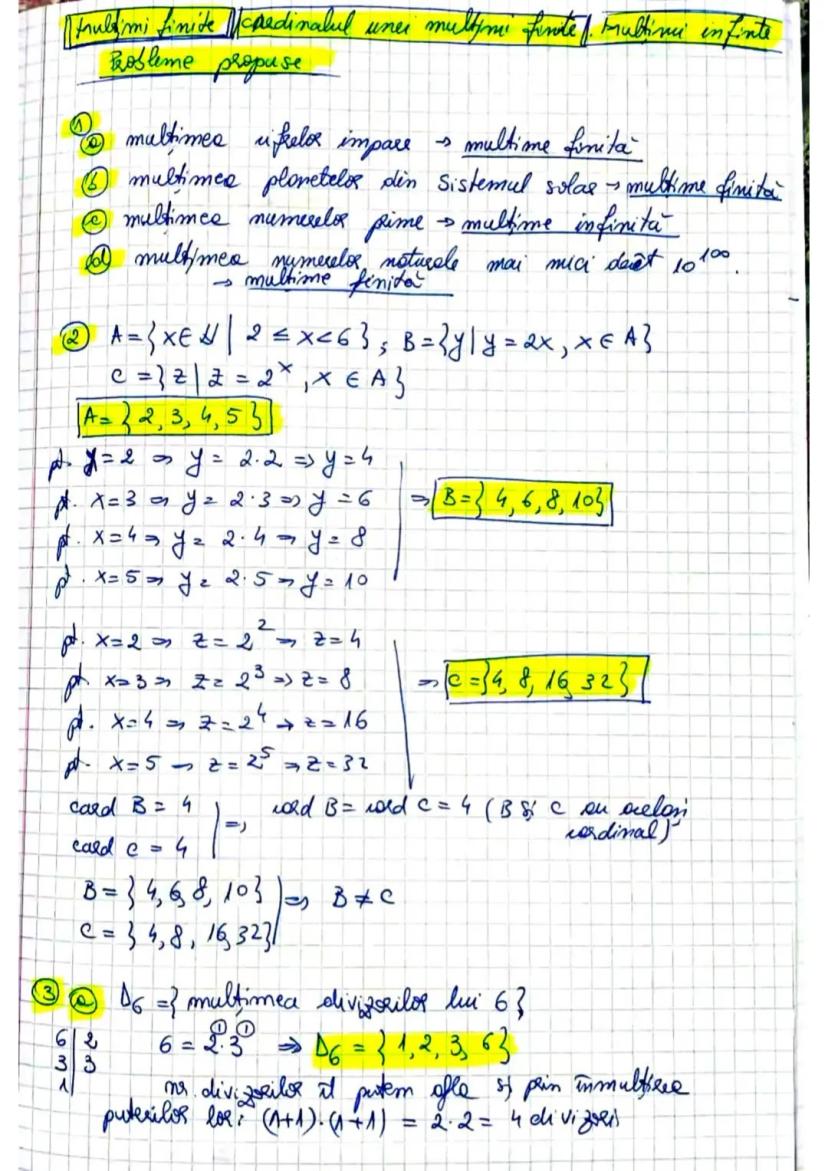 Mulțimi finite. Cardinalul unei mulțimi finite. Mulțimi infinite
Probleme propuse
①
ⓐ mulțimea cifrelor impare → multime finită
ⓑ mulțimea planetelor din Sistemul solar → mulțime finită
ⓒ mulțimea numerelor prime → multime infinită
ⓓ mulțimea numerelor naturale mai mici decât 10¹⁰⁰.
→ multime finită
② A = {x ∈ N | 2 ≤ x < 6}; B = {y | y = 2x, x ∈ A}
C = {z | z = 2ˣ, x ∈ A}
A = {2, 3, 4, 5}
pt. x = 2 ⇒ y = 2·2 ⇒ y = 4
pt. x = 3 ⇒ y = 2·3 ⇒ y = 6 ⇒ B = {4, 6, 8, 10}
pt. x = 4 ⇒ y = 2·4 ⇒ y = 8
pt. x = 5 ⇒ y = 2·5 ⇒ y = 10
pt. x = 2 ⇒ z = 2² ⇒ z = 4
pt. x = 3 ⇒ z = 2³ ⇒ z = 8 ⇒ C = {4, 8, 16, 32}
pt. x = 4 ⇒ z = 2⁴ → z = 16
pt. x = 5 → z = 2⁵ ⇒ z = 32
card B = 4 ⇒ card B = card C = 4 (B și C au același
cardinal)
card C = 4
B = {4, 6, 8, 10} ⇒ B ≠ C
C = {4, 8, 16, 32}
③ ⓐ D₆ = {mulțimea divizorilor lui 6}
6 | 2 6 = 2¹·3¹ ⇒ D₆ = {1, 2, 3, 6}
3 | 3
1 |
nr. divizorilor îl putem afla și prin înmulțirea
puterilor lor: (1+1)·(1+1) = 2·2 = 4 divizori